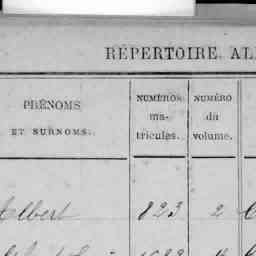 RÉPERTOIRE. AL
PRÉNOMS
ET SURNOMS.
NUMÉROS
ma-
tricules.
NUMÉRO
du
volume.
Albert 823 2